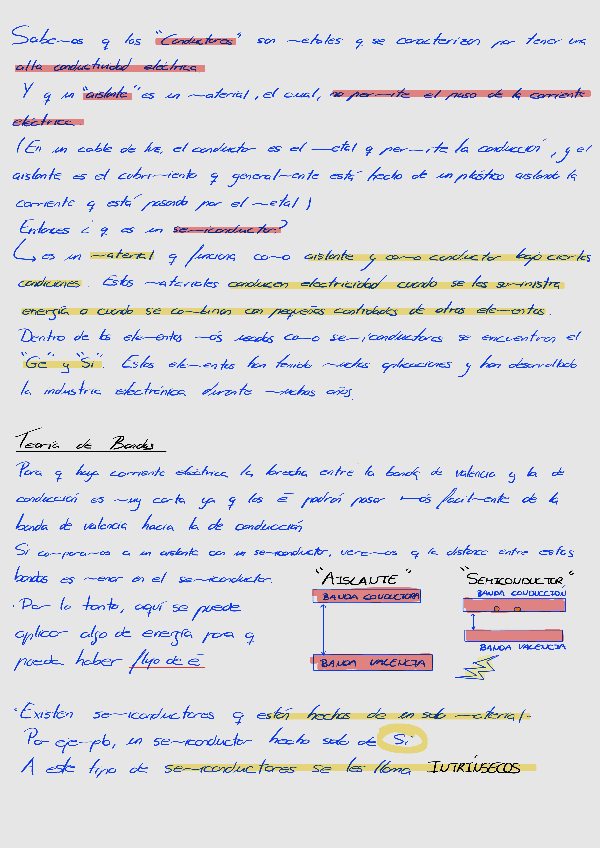 Sabemos q los "Conductores" son metales q se caracterizan por tener una
alta conductividad eléctrica
Y q un "aislante" es un material, el cual, no permite el paso de la corriente
eléctrica.
(En un cable de luz, el conductor es el metal q permite la conducción, y el
aislante es el cubrimiento q generalmente está hecho de un plástico aislando la
corriente q está pasando por el metal)
Entonces ¿q es un semiconductor?
↳ es un material q funciona como aislante y como conductor bajo ciertas
condiciones. Estos materiales conducen electricidad cuando se les suministra
energía o cuando se combinan con pequeñas cantidades de otros elementos.
Dentro de los elementos más usados como semiconductores se encuentran el
"Ge" y "Si". Estos elementos han tenido muchas aplicaciones y han desarrollado
la industria electrónica durante muchos años.
Teoría de Bandas
Para q haya corriente eléctrica la brecha entre la banda de valencia y la de
conducción es muy corta ya q los ē podrán pasar más facilmente de la
banda de valencia hacia la de conducción
Si comparamos a un aislante con un semiconductor, veremos q la distancia entre estas
bandas es menor en el semiconductor.
"AISLANTE" "SEMICONDUCTOR"
BANDA CONDUCTORA BANDA CONDUCCIÓN
· Por lo tanto, aquí se puede
aplicar algo de energía para q
BANDA VALENCIA
pueda haber flujo de ē
BANDA VALENCIA
· Existen semiconductores q están hechos de un solo material.
Por ejemplo, un semiconductor hecho solo de Si
A este tipo de semiconductores se les llama INTRÍNSECOS